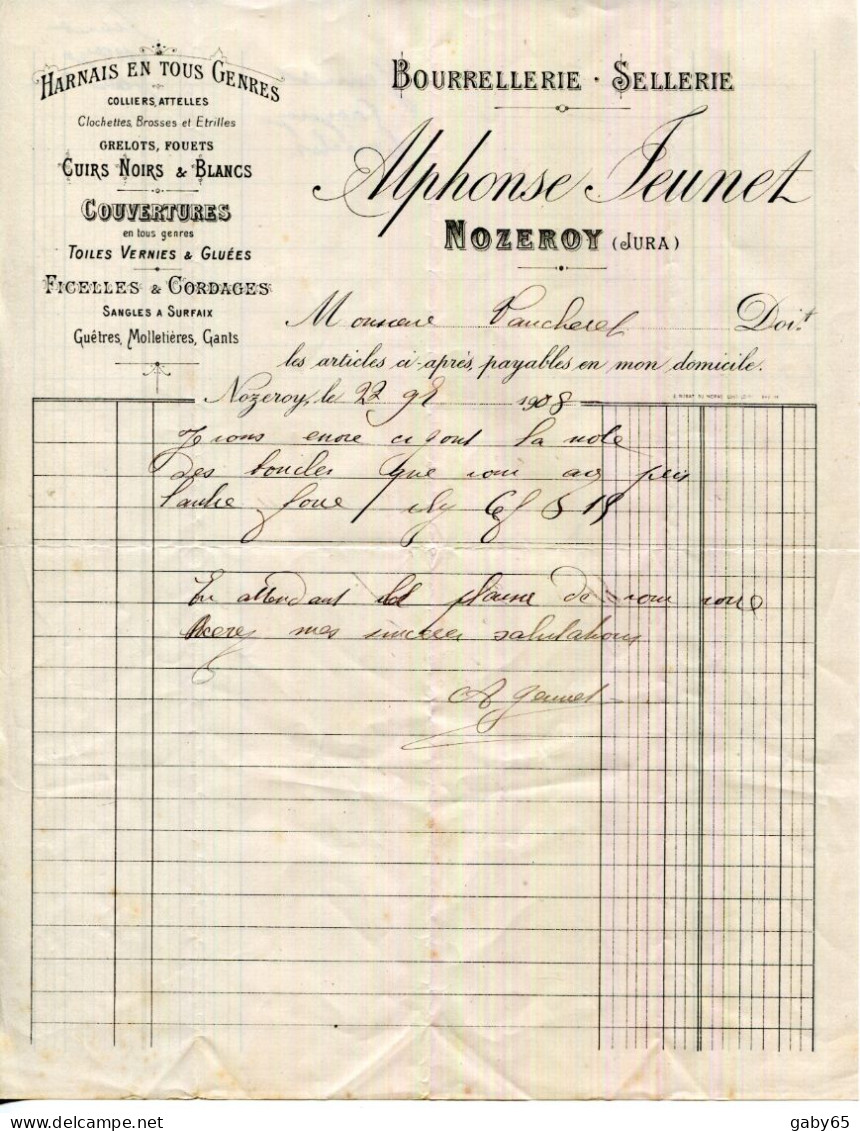 HARNAIS EN TOUS GENRES
COLLIERS, ATTELLES
Clochettes, Brosses et Etrilles
GRELOTS, FOUETS
CUIRS NOIRS & BLANCS
COUVERTURES
en tous genres
TOILES VERNIES & GLUÉES
FICELLES & CORDAGES
SANGLES A SURFAIX
Guêtres, Molletières, Gants
BOURRELLERIE · SELLERIE
Alphonse Jeunet
NOZEROY (JURA)
Monsieur Vaucheret Doit
les articles ci-après, payables en mon domicile.
Nozeroy, le 22 1908
Je vous ci joint la note
des boucles que
l'autre il y
En attendant le de vous
mes sinceres salutations
A Jeunet
delcampe.net
gaby65